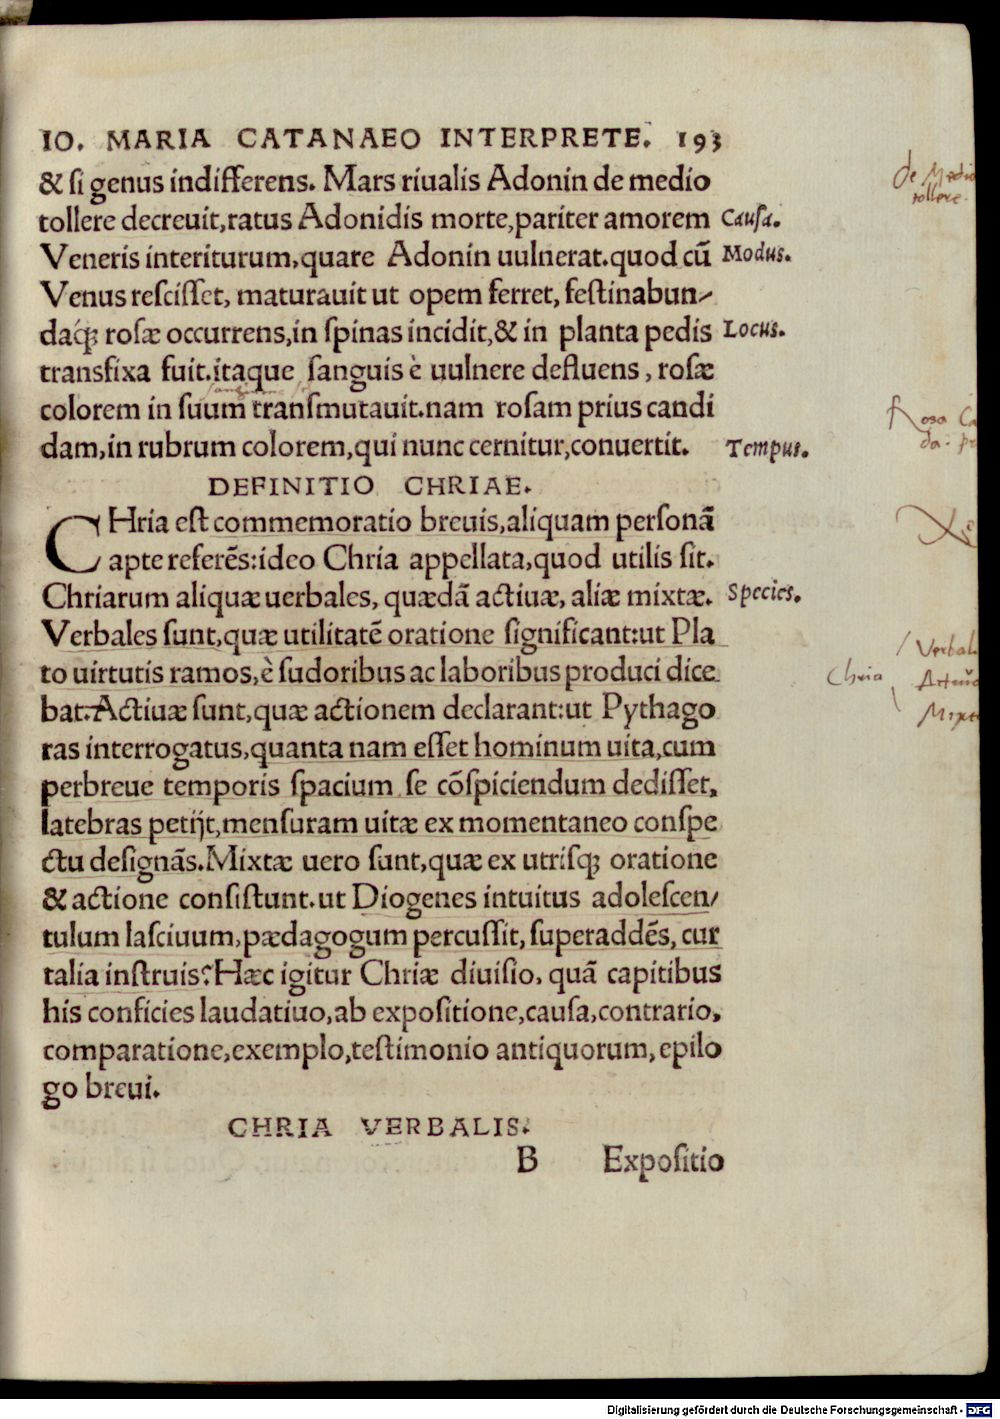 IO. MARIA CATANAEO INTERPRETE. 193
& ſi genus indifferens. Mars riualis Adonin de medio
tollere decreuit,ratus Adonidis morte,pariter amorem
Veneris interiturum,quare Adonin uulnerat.quod cū
Venus reſciſſet, maturauit ut opem ferret, feſtinabun-
daq; roſæ occurrens,in ſpinas incidit,& in planta pedis
transfixa fuit.itaque ſanguis è uulnere defluens, roſæ
colorem in ſuum tranſmutauit.nam roſam prius candi
dam,in rubrum colorem,qui nunc cernitur,conuertit.
Cauſa.
Modus.
Locus.
Tempus.
de Medio
tollere.
DEFINITIO CHRIAE.
CHria eſt commemoratio breuis,aliquam perſonā
apte referēs:ideo Chria appellata,quod utilis ſit.
Chriarum aliquæ uerbales, quædā actiuæ, aliæ mixtæ.
Verbales ſunt,quæ utilitatē oratione ſignificant:ut Pla
to uirtutis ramos,è ſudoribus ac laboribus produci dice
bat.Actiuæ ſunt,quæ actionem declarant:ut Pythago
ras interrogatus,quanta nam eſſet hominum uita,cum
perbreue temporis ſpacium ſe cōſpiciendum dediſſet,
latebras petijt,menſuram uitæ ex momentaneo conſpe
ctu deſignās.Mixtæ uero ſunt,quæ ex utriſq; oratione
& actione conſiſtunt.ut Diogenes intuitus adoleſcen/
tulum laſciuum,pædagogum percuſſit, ſuperaddēs, cur
talia inſtruis?Hæc igitur Chriæ diuiſio, quā capitibus
his conficies laudatiuo,ab expoſitione,cauſa,contrario,
comparatione,exemplo,teſtimonio antiquorum, epilo
go breui.
Species.
Chria
Verbal
Mixt
CHRIA VERBALIS.
B Expoſitio
Digitalisierung gefördert durch die Deutsche Forschungsgemeinschaft - DFG